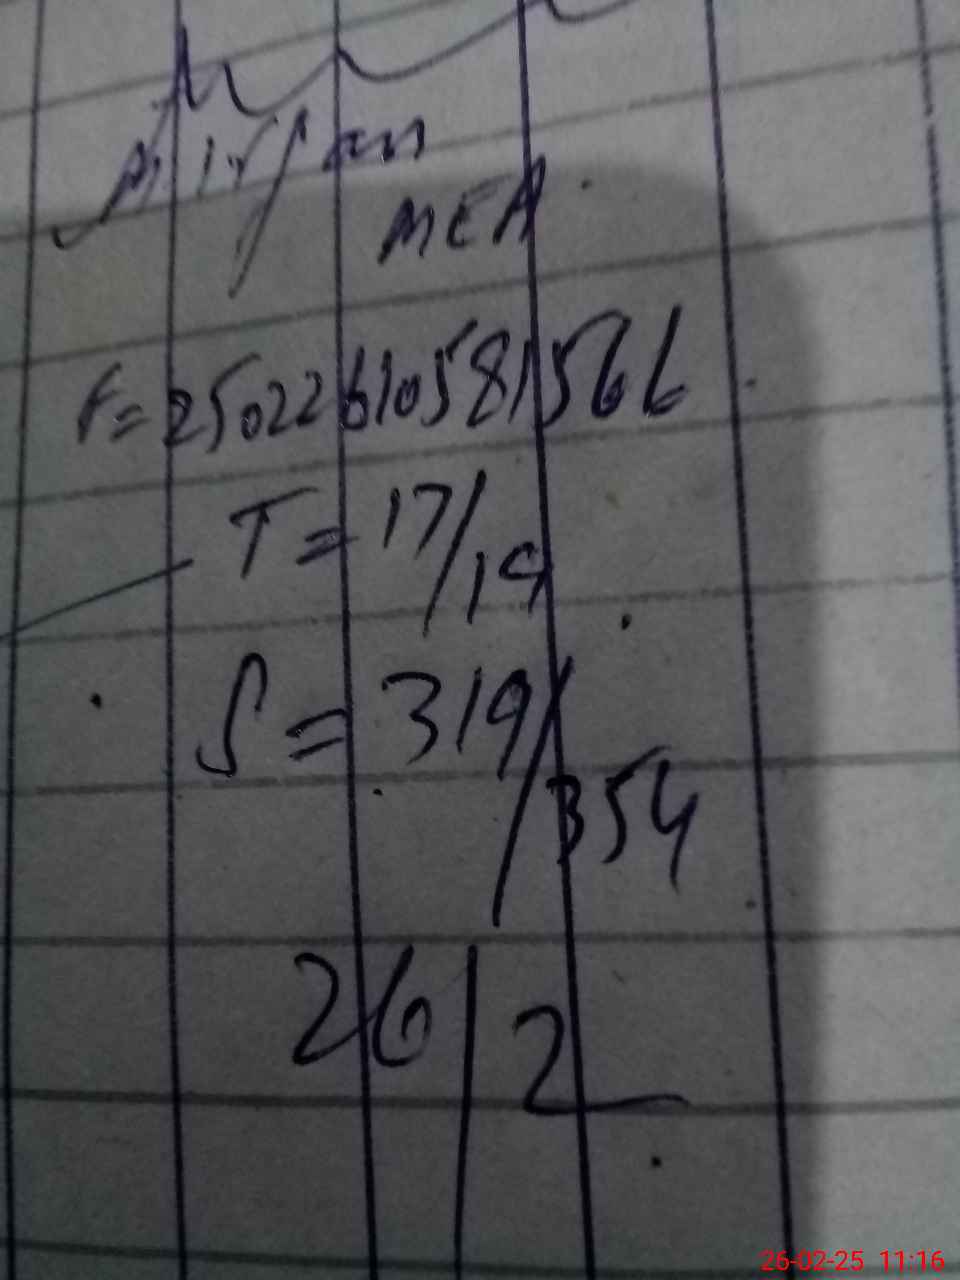 MEA
F= 25022610581566
T = 17/19
S = 319/354
26/2
26-02-25 11:16